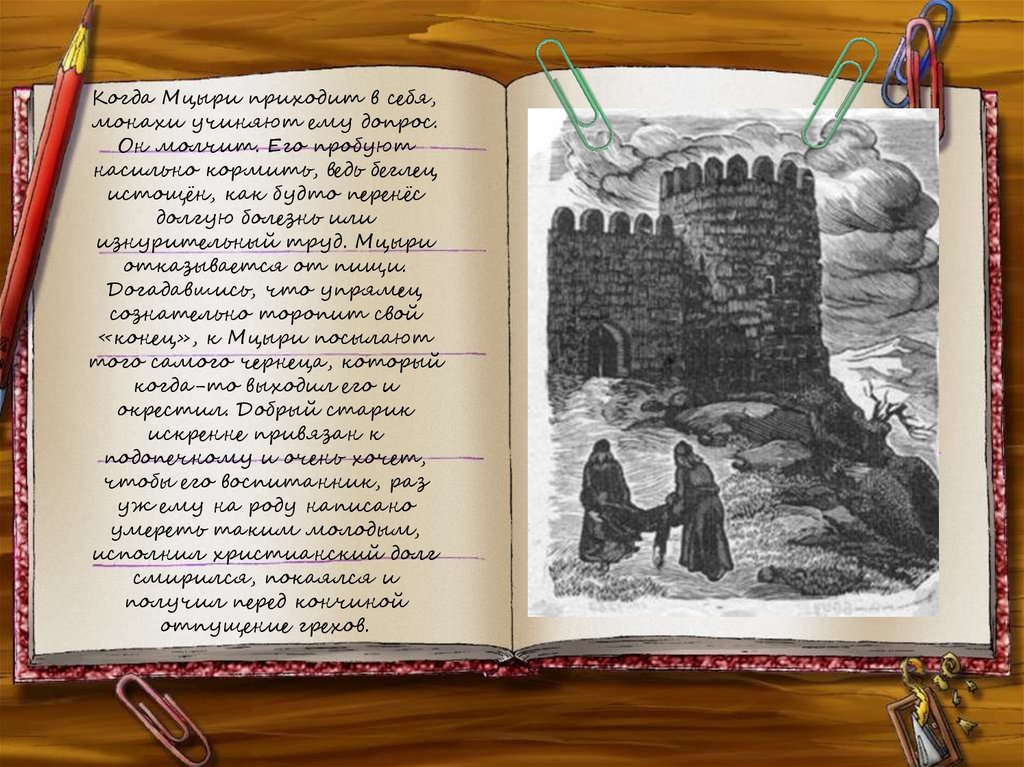 Когда Мцыри приходит в себя,
монахи учиняют ему допрос.
Он молчит. Его пробуют
насильно кормить, ведь беглец
истощён, как будто перенёс
долгую болезнь или
изнурительный труд. Мцыри
отказывается от пищи.
Догадавшись, что упрямец
сознательно торопит свой
«конец», к Мцыри посылают
того самого чернеца, который
когда-то выходил его и
окрестил. Добрый старик
искренне привязан к
подопечному и очень хочет,
чтобы его воспитанник, раз
уж ему на роду написано
умереть таким молодым,
исполнил христианский долг
смирился, покаялся и
получил перед кончиной
отпущение грехов.